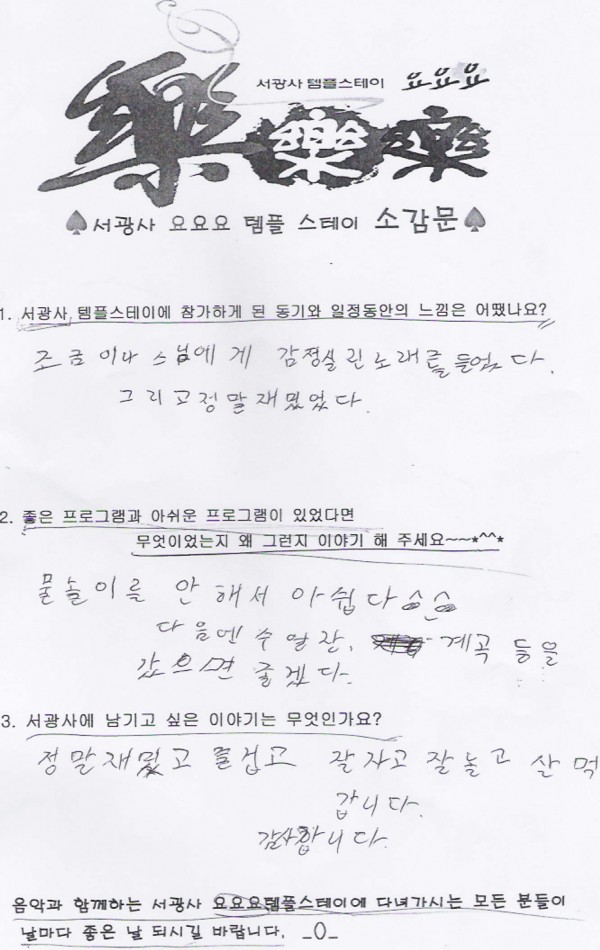 서광사 템플스테이 요요요
樂 樂 樂
♠서광사 요요요 템플 스테이 소감문♠
1. 서광사 템플스테이에 참가하게 된 동기와 일정동안의 느낌은 어땠나요?
조금이나 스님에게 감정실린노래를 들었다.
그리고정말재밌었다.
2. 좋은 프로그램과 아쉬운 프로그램이 있었다면
무엇이었는지 왜 그런지 이야기 해 주세요~~~*^^*
물놀이를 안해서 아쉽다
다음엔 계곡 등을
갔으면 좋겠다.
3. 서광사에 남기고 싶은 이야기는 무엇인가요?
정말재밌고 즐겁고 잘자고 잘놀고 살 먹
갑니다.
감사합니다.
음악과 함께하는 서광사 요요요템플스테이에 다녀가시는 모든 분들이
날마다 좋은 날 되시길 바랍니다. _()_